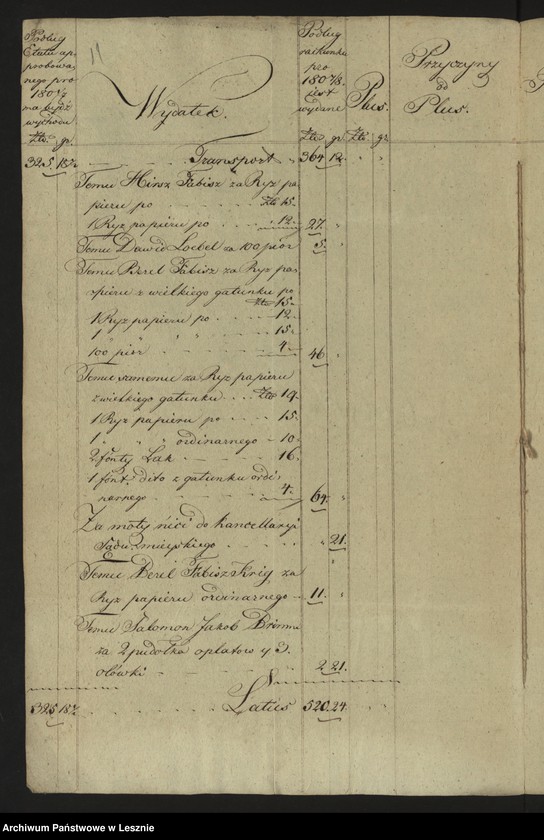 11
Podług
Etatu ap
probowa
nego pro
180 7/8
ma bydź
wychodu
Złł. gr.
Wydatek.
Podług
rachunku
pro
180 7/8.
jest
wydane
Złł. gr.
Plus.
Złł. gr.
Przyczyny
od
Plus.
325. 18 Transport 364 12.
Temu Hirsz Fabisz za Ryz pa
pieru po Złł 15.
1 Ryz papieru po 12. 27.
Temu Dawid Loebel za 100 piór 5.
Temu Berel Fabisz za Ryz pa
pieru z wielkiego gatunku po
Złł 15.
1 Ryz papieru po 12.
1 " " 15.
100 piór 4. 46
Temu samemu za Ryz papieru
z wielkiego gatunku Złł 19.
1 Ryz papieru po 15.
1 " " ordinarnego 10.
2 fonty Lak 16.
1 font dito z gatunku ordi
narnego 4. 64.
Za moty nici do kancellaryi
Sądu mieyskiego 21.
Temu Berel Fabisz Krig za
Ryz papieru ordinarnego 11.
Temu Salomon Jakob
za 2 pudołka opłatow y 3.
ołówki 2 21.
325 18 Latus 520. 24.
Archiwum Państwowe w Lesznie